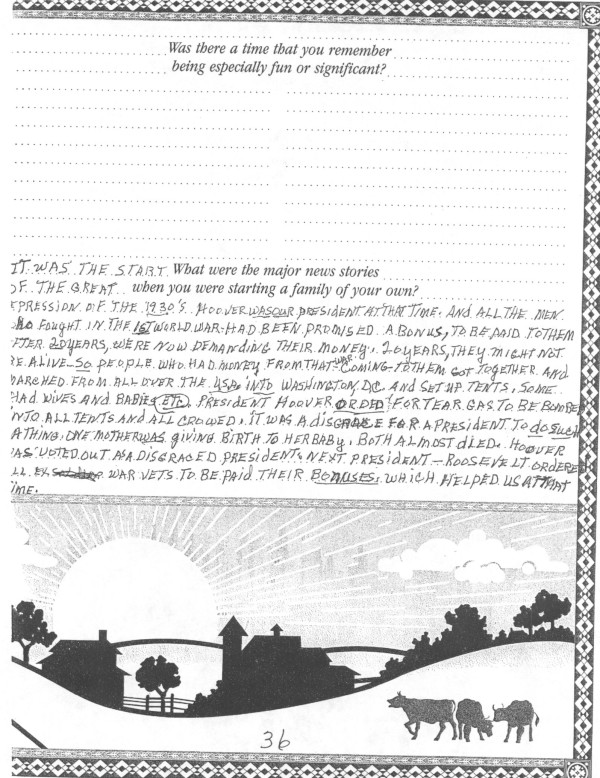 Was there a time that you remember
being especially fun or significant?
IT WAS THE START What were the major news stories
OF THE GREAT when you were starting a family of your own?
EPRESSION OF THE 1930'S. HOOVER WAS OUR PRESIDENT AT THAT TIME. AND ALL THE MEN
WHO FOUGHT IN THE 1ST WORLD WAR HAD BEEN PROMISED A BONUS, TO BE PAID TO THEM
FTER 20 YEARS, WERE NOW DEMANDING THEIR MONEY. 20 YEARS, THEY MIGHT NOT
BE ALIVE - SO PEOPLE WHO HAD MONEY FROM THAT WAR COMING TO THEM GOT TOGETHER AND
MARCHED FROM ALL OVER THE USA INTO WASHINGTON, DC AND SET UP TENTS, SOME
HAD WIVES AND BABIES ETC. PRESIDENT HOOVER ORDED FOR TEAR GAS TO BE BOMBED
INTO ALL TENTS AND ALL CROWED. IT WAS A DISGRACE FOR A PRESIDENT TO DO SUCH
A THING. ONE MOTHER WAS GIVING BIRTH TO HER BABY, BOTH ALMOST DIED. HOOVER
WAS VOTED OUT AS A DISGRACED PRESIDENT. NEXT PRESIDENT - ROOSEVELT ORDERED
ALL EX WAR VETS TO BE PAID THEIR BONUSES, WHICH HELPED US AT THAT
TIME.
36